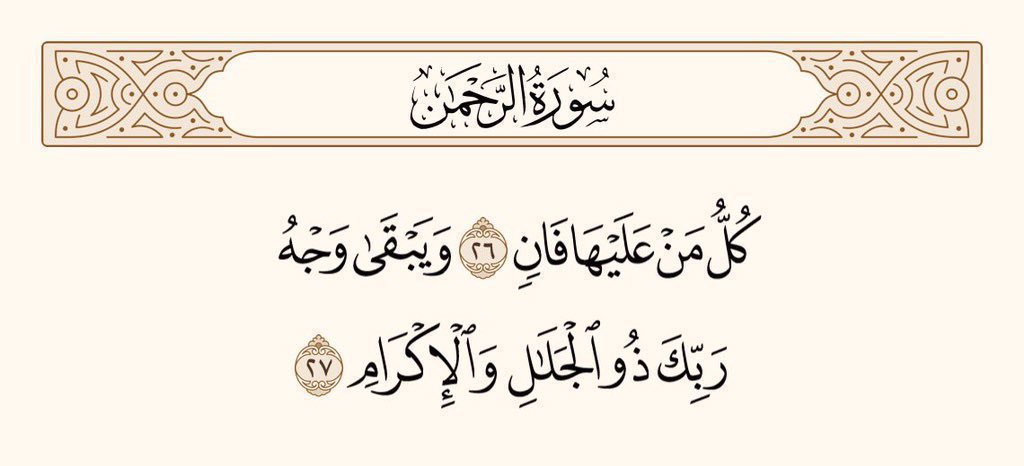 سُورَةُ الرَّحْمَٰن
كُلُّ مَنْ عَلَيْهَا فَانٍ ٢٦ وَيَبْقَىٰ وَجْهُ
رَبِّكَ ذُو ٱلْجَلَٰلِ وَٱلْإِكْرَامِ ٢٧